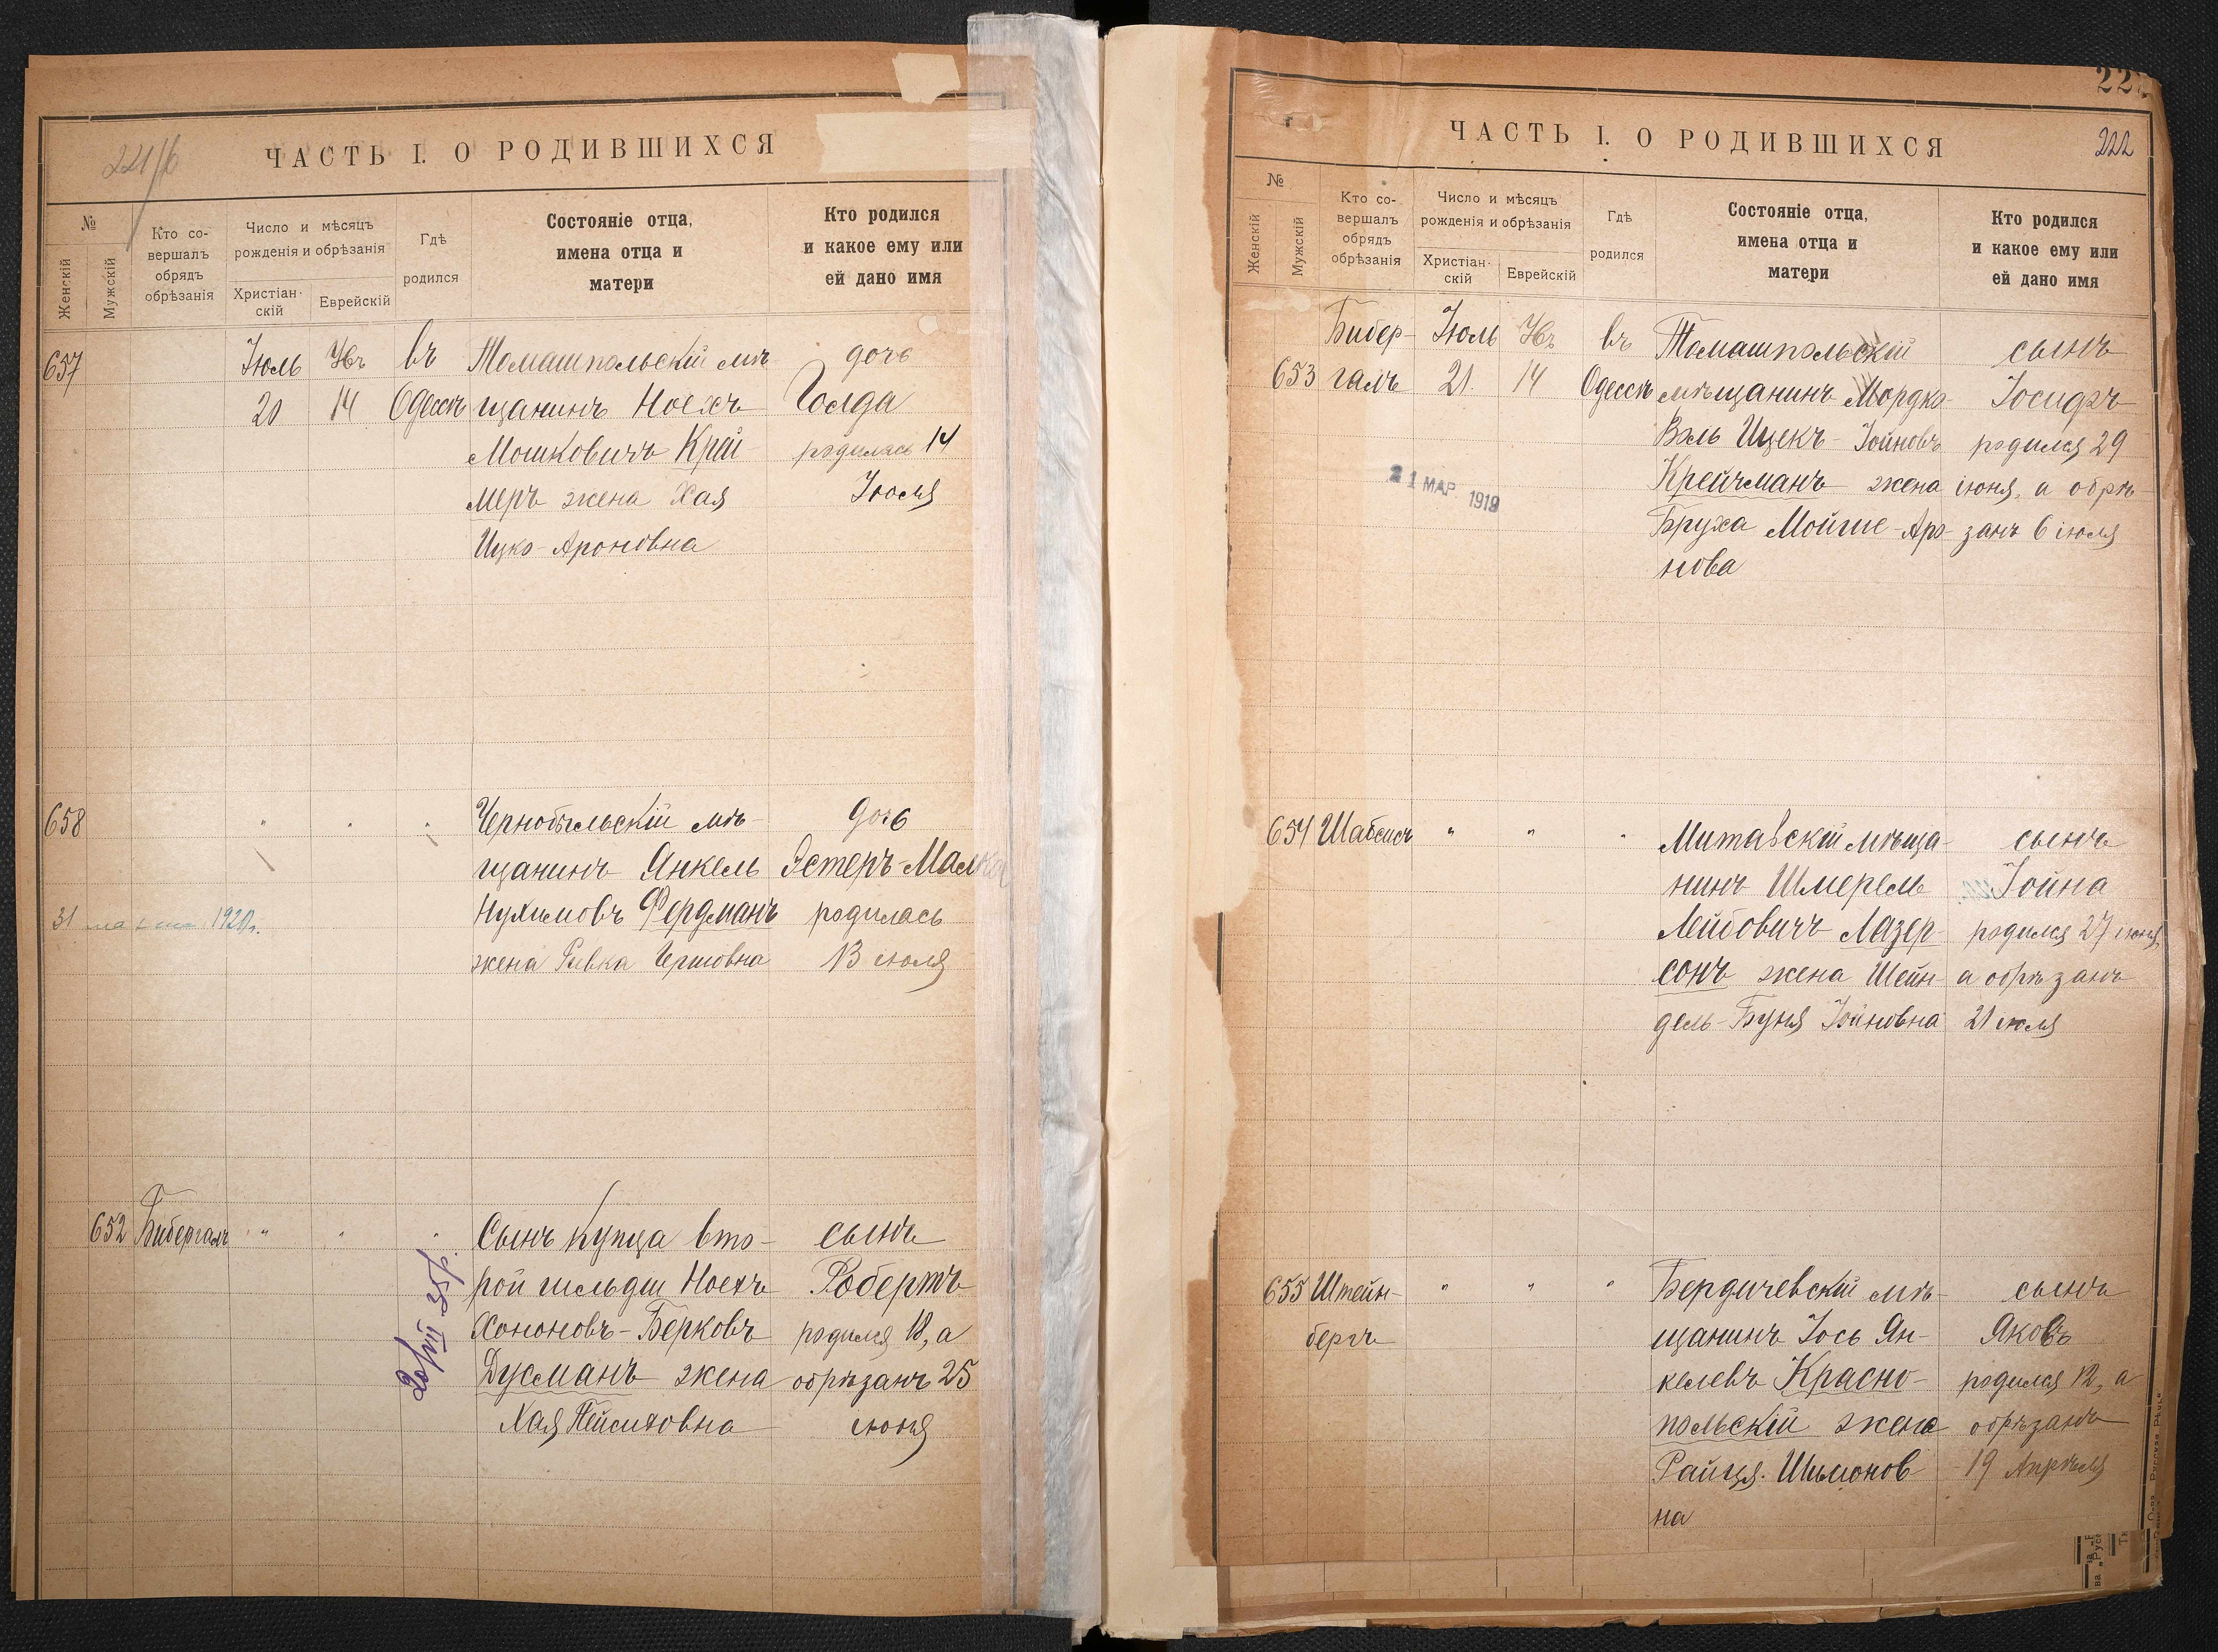 221/б
ЧАСТЬ I. О РОДИВШИХСЯ
№
Женскій
Мужскій
Кто со-
вершалъ
обрядъ
обрѣзанія
Число и мѣсяцъ
рожденія и обрѣзанія
Христіан-
скій
Еврейскій
Гдѣ
родился
Состояніе отца,
имена отца и
матери
Кто родился
и какое ему или
ей дано имя
657
Іюль
20
14
въ
Одессѣ
Томашпольскій мѣ-
щанинъ Ноехъ
Мошковичъ Край-
меръ жена Хая
Ицко-Ароновна
дочь
Голда
родилась 14
Іюля
658
Чернобыльскій мѣ-
щанинъ Янкель
Нухимовъ Фердманъ
жена Ривка Гершовна
дочь
Эстеръ-Малка
родилась
13 іюля
31 1920г.
652 Бибергалъ
Сынъ купца вто-
рой гильдіи Ноехъ
Хононовъ-Берковъ
Дусманъ жена
Хая Пейсиховна
сынъ
Робертъ
родился 18, а
обрѣзанъ 25
іюня
222
ЧАСТЬ I. О РОДИВШИХСЯ
№
Женскій
Мужскій
Кто со-
вершалъ
обрядъ
обрѣзанія
Число и мѣсяцъ
рожденія и обрѣзанія
Христіан-
скій
Еврейскій
Гдѣ
родился
Состояніе отца,
имена отца и
матери
Кто родился
и какое ему или
ей дано имя
653
Бибер-
галъ
Іюль
21.
14
въ
Одессѣ
Томашпольскій
мѣщанинъ Мордко-
Вэль Ицекъ-Іойновъ
Крейчманъ жена
Бруха Мойше-Аро-
нова
сынъ
Іосифъ
родился 29
іюня, а обрѣ-
занъ 6 іюля
21 МАР. 1919
654 Шабсисъ
Митавскій мѣща-
нинъ Шмерель
Лейбовичъ Лазер-
сонъ жена Шейн-
дель-Буня Іойновна
сынъ
Іойна
родился 27 іюня,
а обрѣзанъ
21 іюля
655 Штейн-
бергъ
Бердичевскій мѣ-
щанинъ Іось Ян-
келевъ Красно-
польскій жена
Райця Шимонов
на
сынъ
Яковъ
родился 12, а
обрѣзанъ
19 Апрѣля